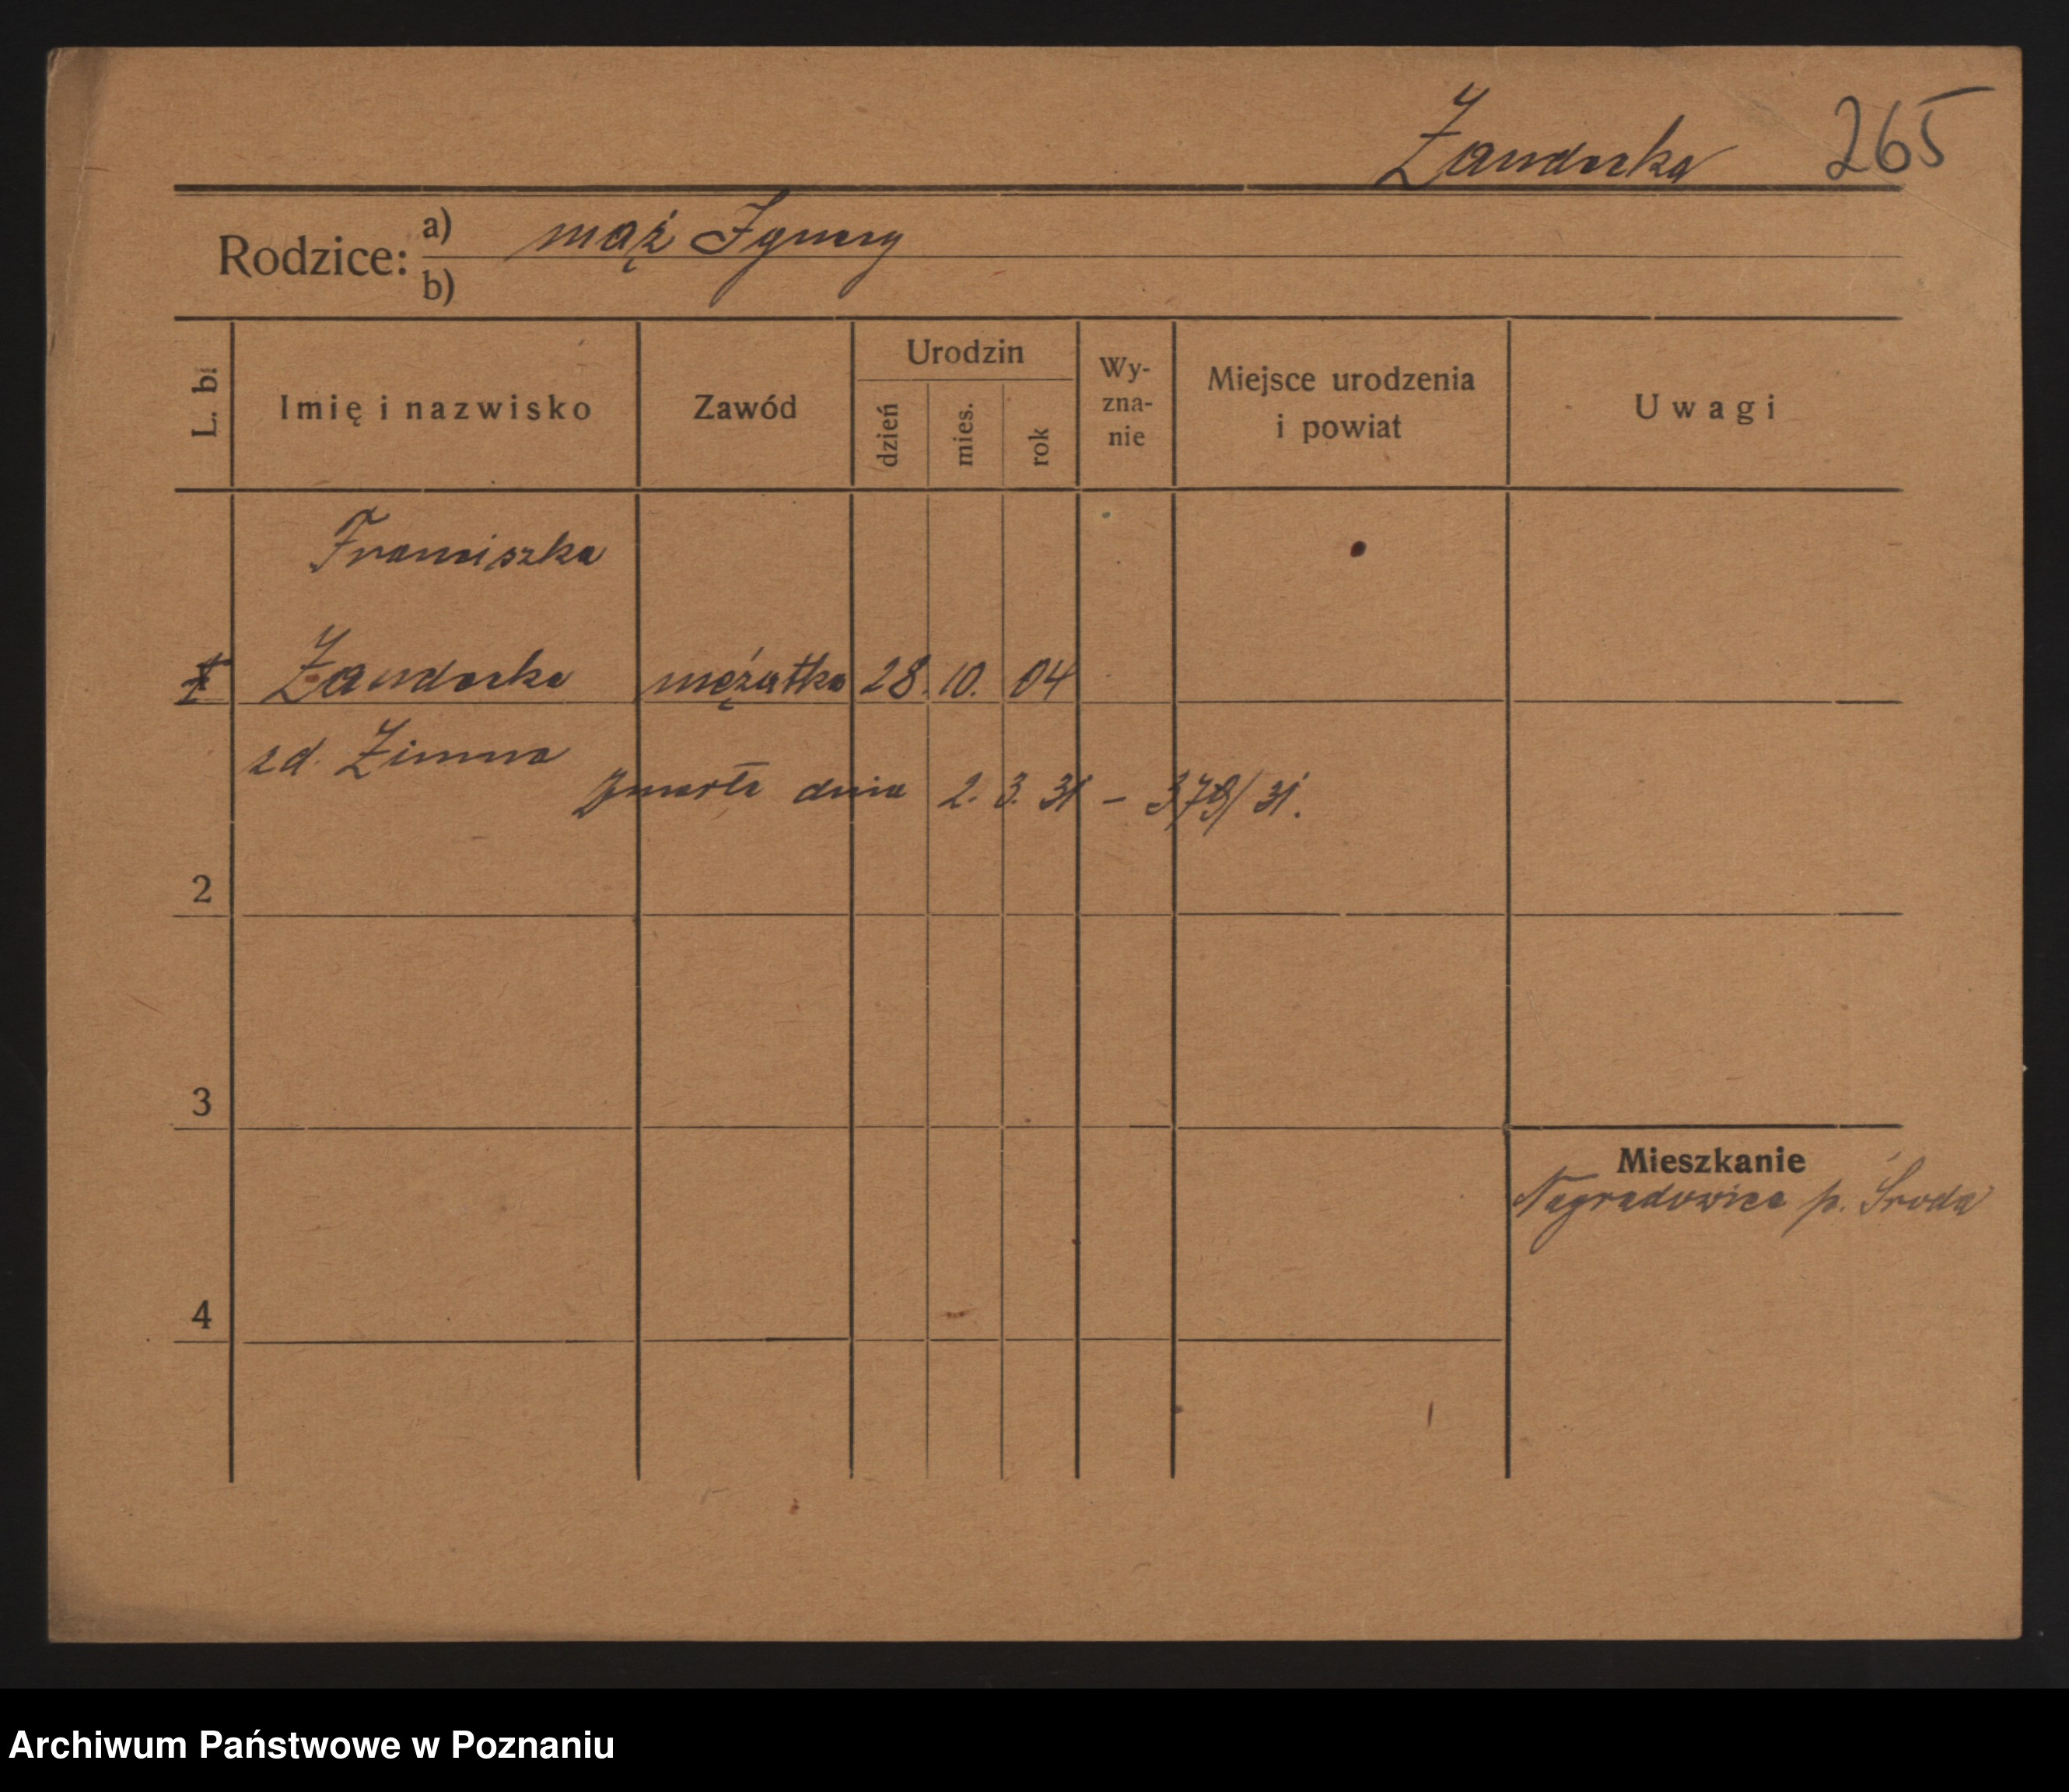 Żandecka 265
Rodzice: a) mąż Ignacy
b)
L. b. Imię i nazwisko Zawód Urodzin dzień mies. rok Wy-zna-nie Miejsce urodzenia i powiat Uwagi
Franciszka
1 Żandecka mężatka 28. 10. 04
zd. Zimna
Zmarła dnia 2. 3. 31 – 379/31.
2
3
Mieszkanie
Nagradowice p. Środa
4
Archiwum Państwowe w Poznaniu